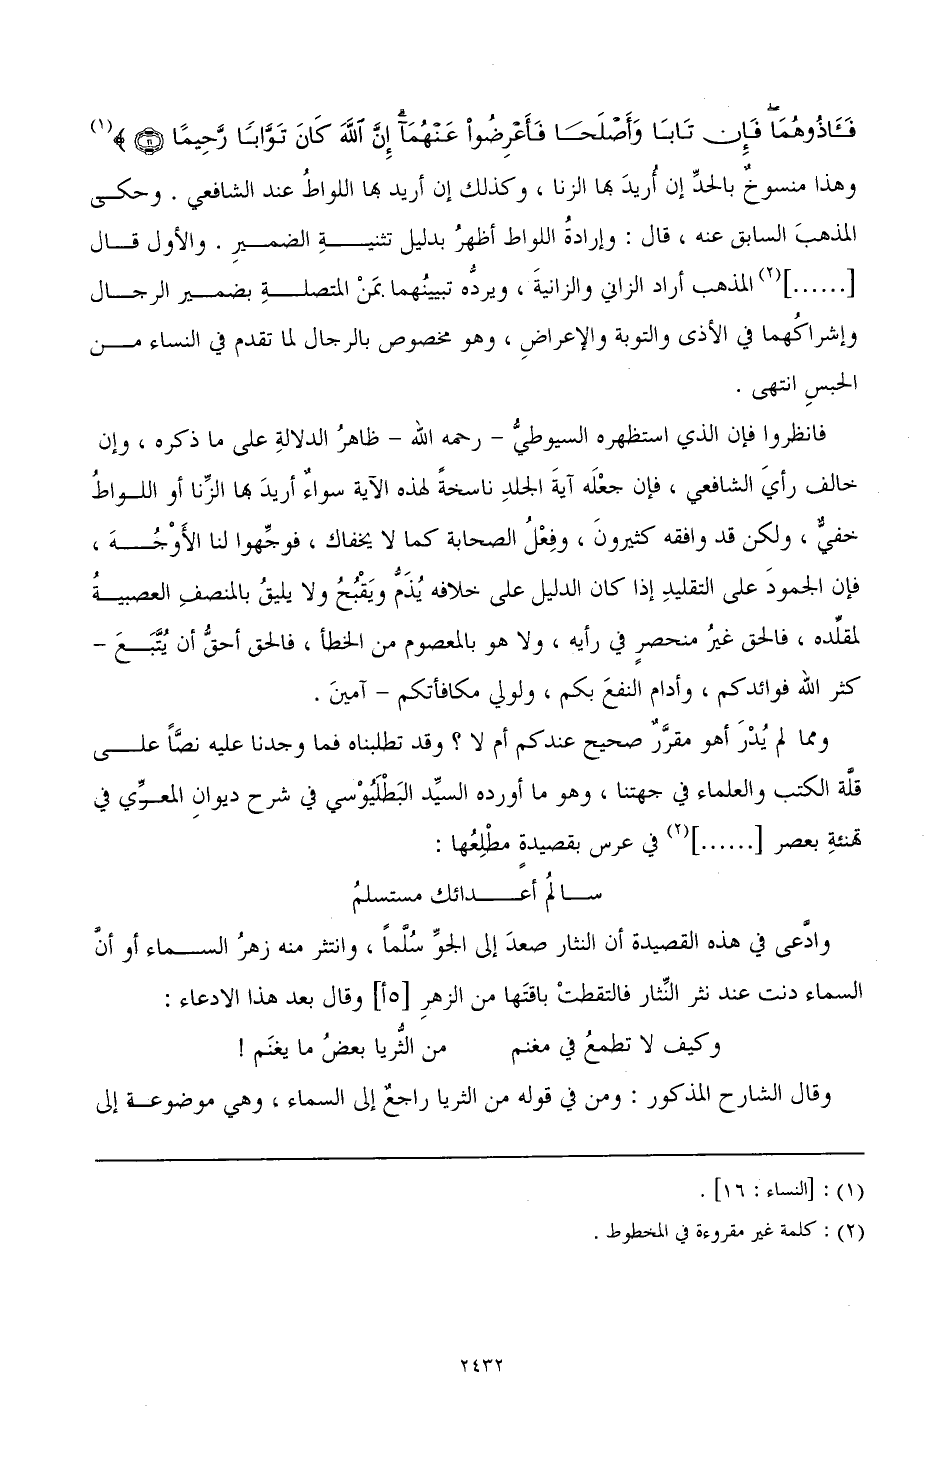 فَـَٔاذُوهُمَا فَإِن تَابَا وَأَصْلَحَا فَأَعْرِضُوا۟ عَنْهُمَآ إِنَّ ٱللَّهَ كَانَ تَوَّابًا رَّحِيمًا ۝١٦ ﴾(١)
وهذا منسوخٌ بالحدِّ إن أُريدَ بها الزنا ، وكذلك إن أريد بها اللواطُ عند الشافعي . وحكى
المذهبَ السابق عنه ، قال : وإرادةُ اللواط أظهرُ بدليل تثنيةِ الضميرِ . والأول قال
[......](٢) المذهب أراد الزاني والزانيةَ ، ويردُّه تبيينُهما بمَنْ المتصلةِ بضميرِ الرجال
وإشراكُهما في الأذى والتوبة والإعراضِ ، وهو مخصوص بالرجال لما تقدم في النساء من
الحبسِ انتهى .
فانظروا فإن الذي استظهره السيوطيُّ - رحمه الله - ظاهرُ الدلالةِ على ما ذكره ، وإن
خالف رأيَ الشافعي ، فإن جعْلَه آيةَ الجلدِ ناسخةً لهذه الآية سواءٌ أريدَ بها الزِّنا أو اللواطُ
خفيٌّ ، ولكن قد وافقه كثيرونَ ، وفِعْلُ الصحابة كما لا يخفاك ، فوجِّهوا لنا الأَوْجُهَ ،
فإن الجمودَ على التقليدِ إذا كان الدليل على خلافه يُذَمُّ ويَقْبُحُ ولا يليقُ بالمنصفِ العصبيةُ
لمقلِّده ، فالحق غيرُ منحصرٍ في رأيه ، ولا هو بالمعصوم من الخطأ ، فالحق أحقُّ أن يُتَّبَعَ -
كثر الله فوائدكم ، وأدام النفعَ بكم ، ولولي مكافأتكم - آمينَ .
ومما لم يُدْرَ أهو مقرَّرٌ صحيح عندكم أم لا ؟ وقد تطلبناه فما وجدنا عليه نصَّاً على
قلَّة الكتب والعلماء في جهتنا ، وهو ما أورده السيِّد البَطَلَيُوْسي في شرح ديوانِ المعرِّي في
تهنئةِ بعصر [......](٢) في عرس بقصيدةٍ مطْلِعُها :
سالمُ أعدائك مستسلمُ
وادَّعى في هذه القصيدة أن النثار صعدَ إلى الجوِّ سُلَّماً ، وانتثر منه زهرُ السماء أو أنَّ
السماء دنت عند نثر النِّثار فالتقطتْ باقتَها من الزهرِ [٥أ] وقال بعد هذا الادعاء :
وكيف لا تطمعُ في مغنم من الثُّريا بعضُ ما يغنَم !
وقال الشارح المذكور : ومن في قوله من الثريا راجعٌ إلى السماء ، وهي موضوعة إلى
(١) : [النساء : ١٦] .
(٢) : كلمة غير مقروءة في المخطوط .
٢٤٣٢